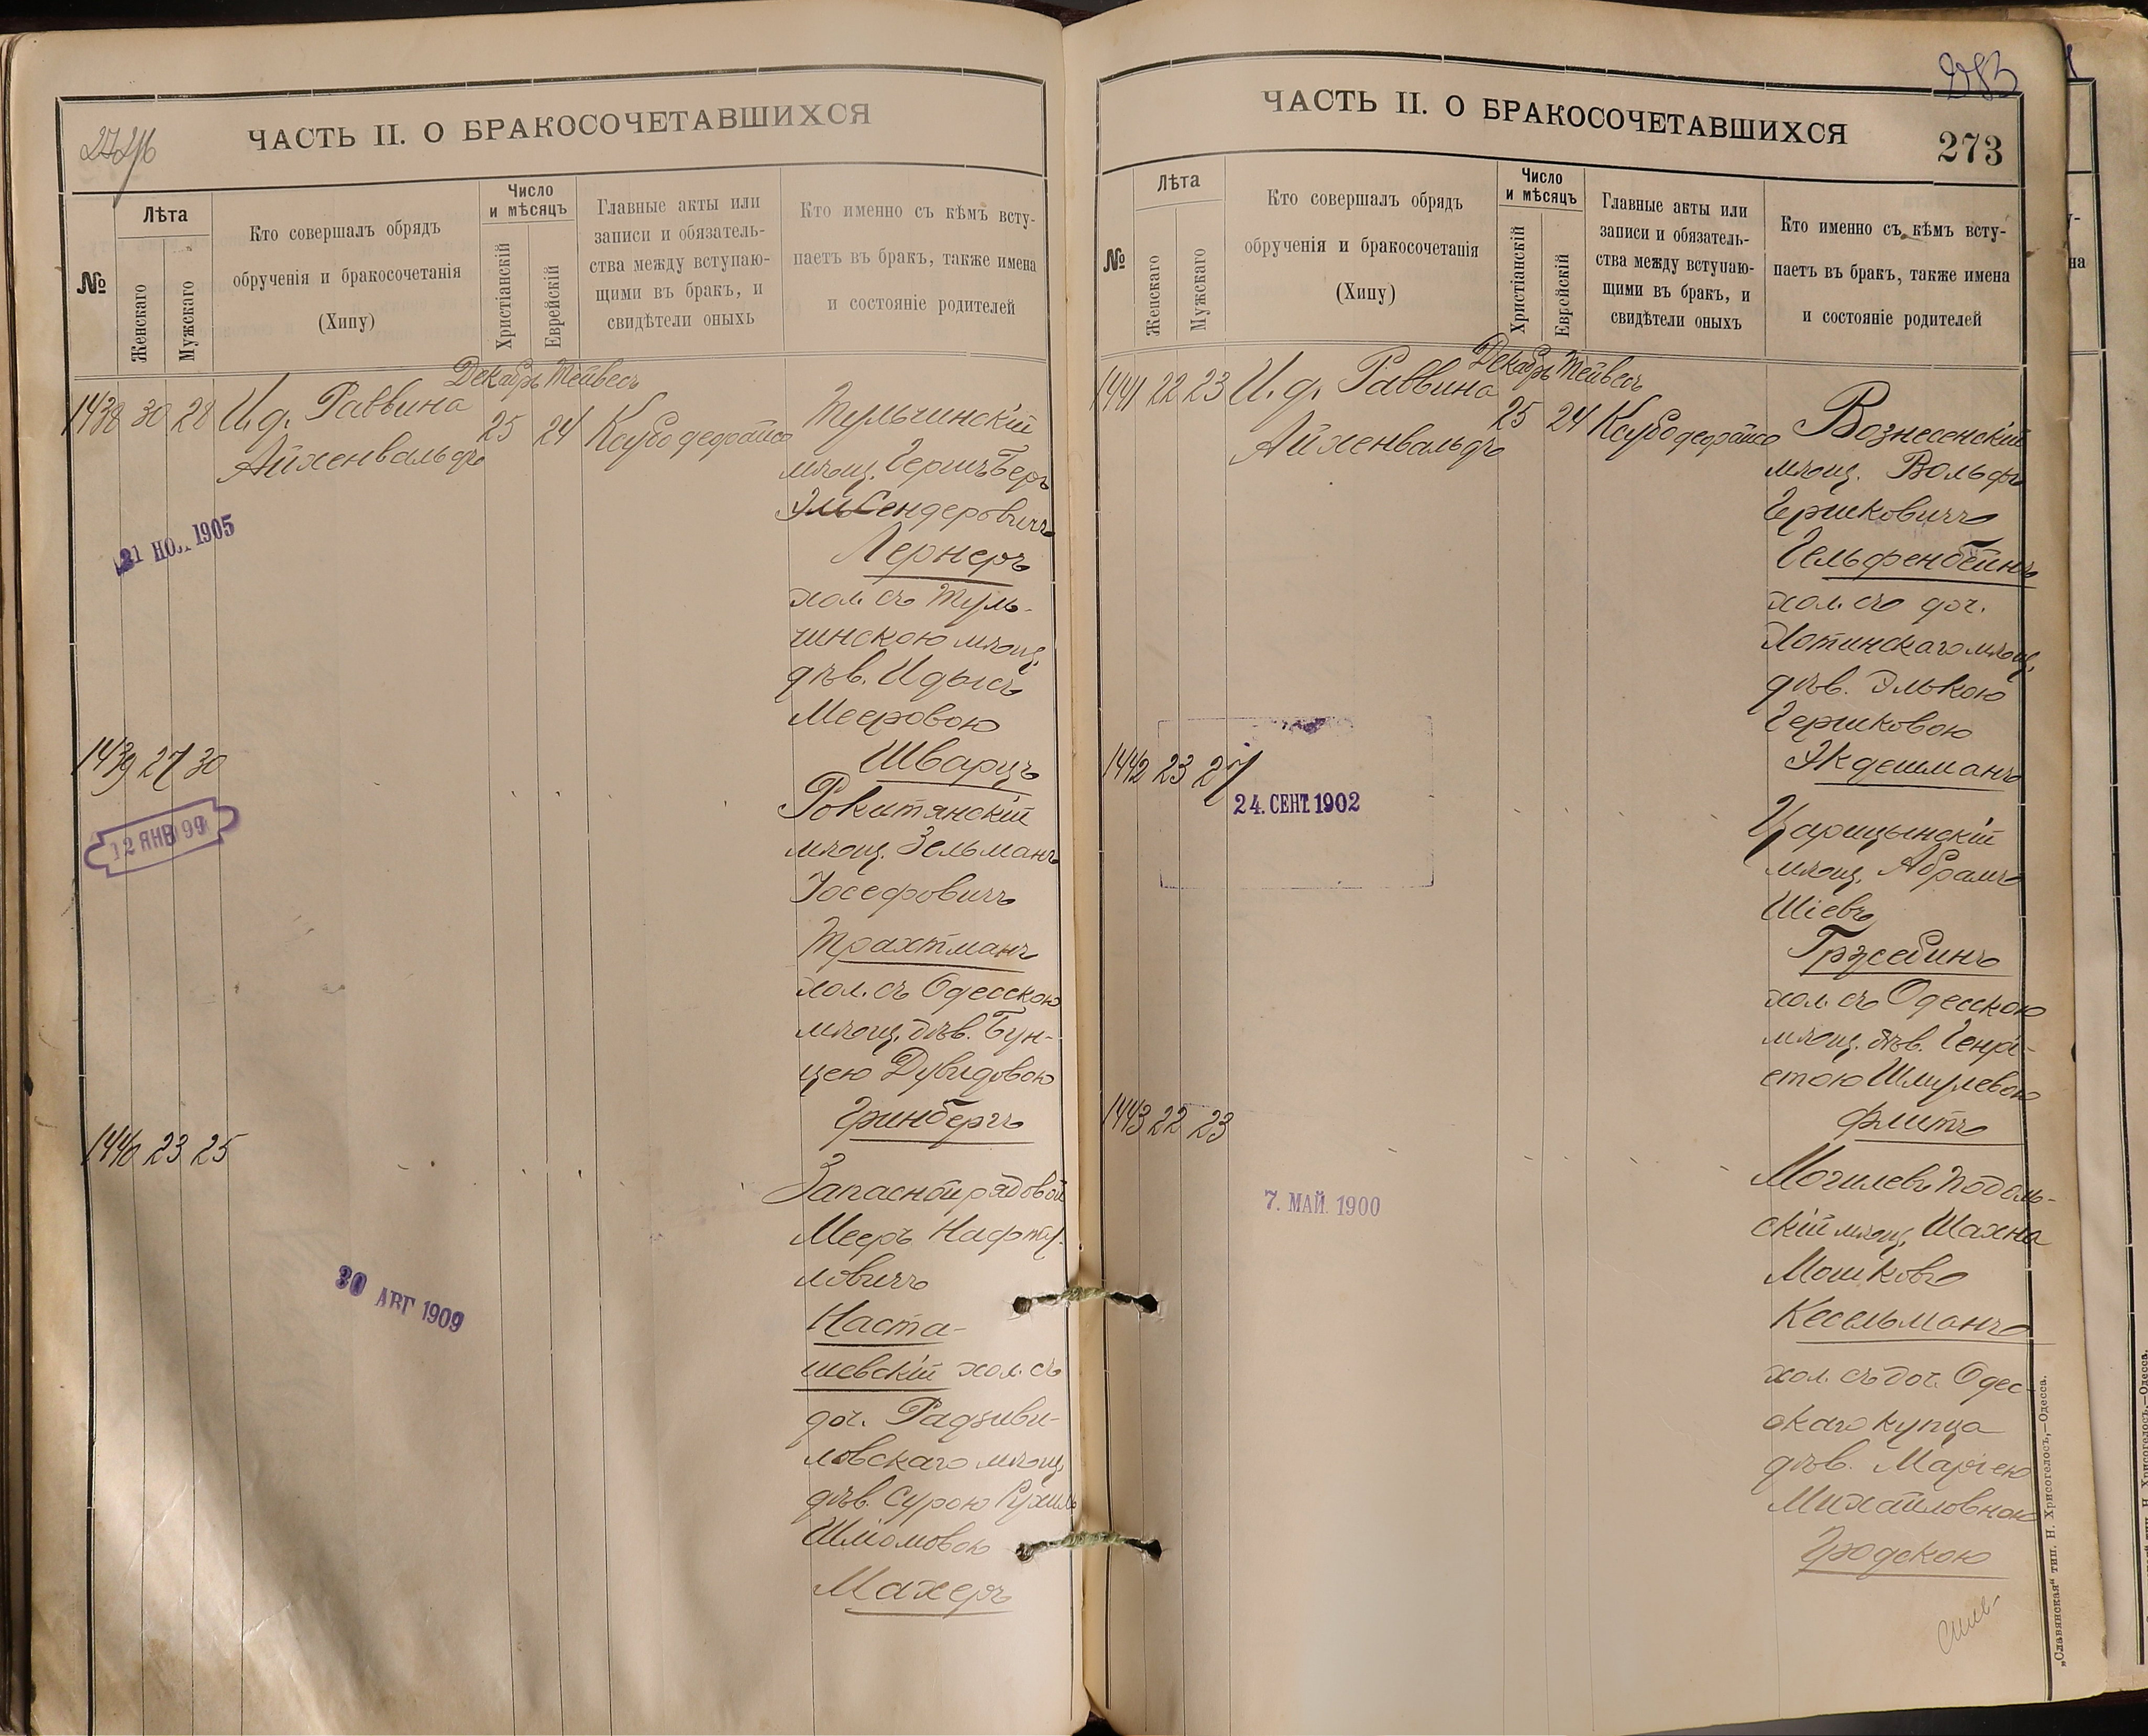 ЧАСТЬ II. О БРАКОСОЧЕТАВШИХСЯ
№
Лѣта
Женскаго
Мужскаго
Кто совершалъ обрядъ
обрученія и бракосочетанія
(Хипу)
Число
и мѣсяцъ
Христіанскій
Еврейскій
Главные акты или
записи и обязатель-
ства между вступаю-
щими въ бракъ, и
свидѣтели оныхъ
Кто именно съ кѣмъ всту-
паетъ въ бракъ, также имена
и состояніе родителей
Декабрь Тейвесъ
1438 30 28 И. д. Раввина
Айхенвальдъ
25 24
Тульчинскій
мѣщ. Гершъ Беръ
Сендеровичъ
Лернеръ
хол. съ Туль-
чинскою мѣщ.
дѣв. Идысъ
Мееровою
Шварцъ
1905
1439 27 30
Рокитянскій
мѣщ. Зельманъ
Іосефовичъ
Трахтманъ
хол. съ Одесскою
мѣщ. дѣв. Бун-
цею Дувидовою
Гринбергъ
12 ЯНВ 99
1440 23 25
Запасной рядовой
Мееръ Нафту-
ловичъ
Наста-
шевскій хол. съ
доч. Радзиви-
ловскаго мѣщ.
дѣв. Сурою Рухиль
Шліомовою
Махеръ
30 АВГ 1909
ЧАСТЬ II. О БРАКОСОЧЕТАВШИХСЯ
273
№
Лѣта
Женскаго
Мужскаго
Кто совершалъ обрядъ
обрученія и бракосочетанія
(Хипу)
Число
и мѣсяцъ
Христіанскій
Еврейскій
Главные акты или
записи и обязатель-
ства между вступаю-
щими въ бракъ, и
свидѣтели оныхъ
Кто именно съ кѣмъ всту-
паетъ въ бракъ, также имена
и состояніе родителей
Декабрь Тейвесъ
1441 22 23 И. д. Раввина
Айхенвальдъ
25 24
Вознесенскій
мѣщ. Вольфъ
Гершковичъ
Гельфенбейнъ
хол. съ доч.
Хотинскаго мѣщ.
дѣв. Элькою
Гершковою
Экдешманъ
1442 23 27
24. СЕНТ. 1902
Царицынскій
мѣщ. Абрамъ
Шіевъ
Гржебинъ
хол. съ Одесскою
мѣщ. дѣв. Генрі-
етою Шмулевою
Флитъ
1443 22 23
7. МАЙ. 1900
Могилевъ Подоль-
скій мѣщ. Шахна
Мошковъ
Кесельманъ
хол. съ доч. Одес-
скаго купца
дѣв. Маріею
Михайловною
Гродскою
„Славянская“ тип. Н. Хрисогелосъ,—Одесса.